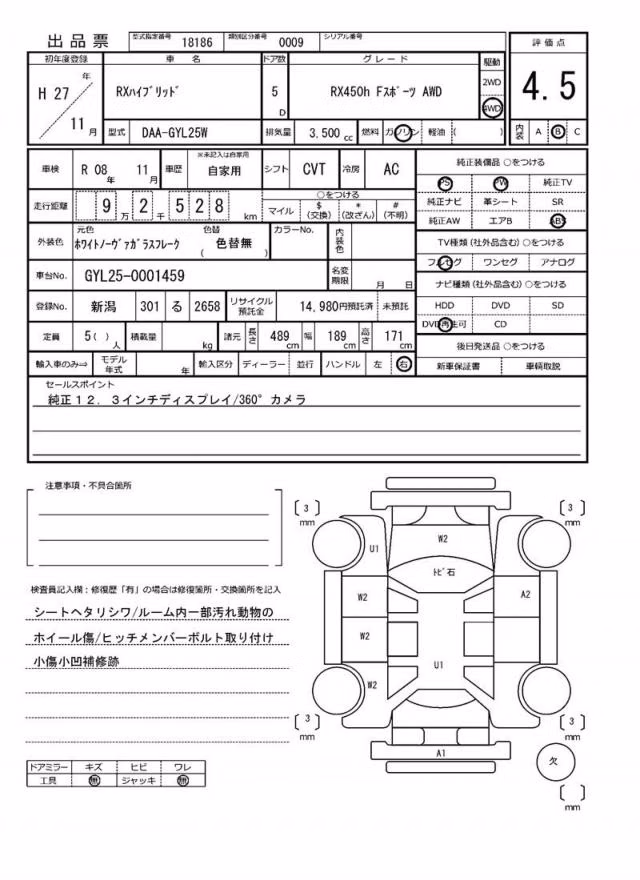 出品票 型式指定番号 18186 類別区分番号 0009 シリアル番号
評価点
4.5
初年度登録 車名 ドア数 グレード 駆動
H 27 年 11 月
RXハイブリッド 5 D RX450h Fスポーツ AWD 2WD 4WD
型式 DAA-GYL25W 排気量 3,500 cc 燃料 ガソリン 軽油 ( )
内装 A B C
車検 R 08 年 11 月 車歴 ※未記入は自家用 自家用 シフト CVT 冷房 AC
走行距離 9 万 2 千 5 2 8 km
○をつける
マイル $(交換) *(改ざん) #(不明)
外装色 元色 ホワイトノーヴァガラスフレーク 色替 ( 色替無 ) カラーNo. 内装色
車台No. GYL25-0001459 名変期限 月 日
登録No. 新潟 301 る 2658 リサイクル預託金 14,980円預託済 未預託
定員 5( )人 積載量 kg 諸元 長さ 489 cm 幅 189 cm 高さ 171 cm
輸入車のみ⇒ モデル年式 年 輸入区分 ディーラー 並行 ハンドル 左 右
純正装備品 ○をつける
PS PW 純正TV
純正ナビ 革シート SR
純正AW エアB ABS
TV種類(社外品含む) ○をつける
フルセグ ワンセグ アナログ
ナビ種類(社外品含む) ○をつける
HDD DVD SD
DVD再生可 CD
後日発送品 ○をつける
新車保証書 車輌取説
セールスポイント
純正12.3インチディスプレイ/360°カメラ
注意事項・不具合箇所
検査員記入欄:修復歴「有」の場合は修復箇所・交換箇所を記入
シートヘタリシワ/ルーム内一部汚れ動物の
ホイール傷/ヒッチメンバーボルト取り付け
小傷小凹補修跡
ドアミラー キズ ヒビ ワレ
工具 無 ジャッキ 無
3 mm
3 mm
U1
W2
トビ石
W2
A2
W2
U1
W2
3 mm
3 mm
A1
欠
mm